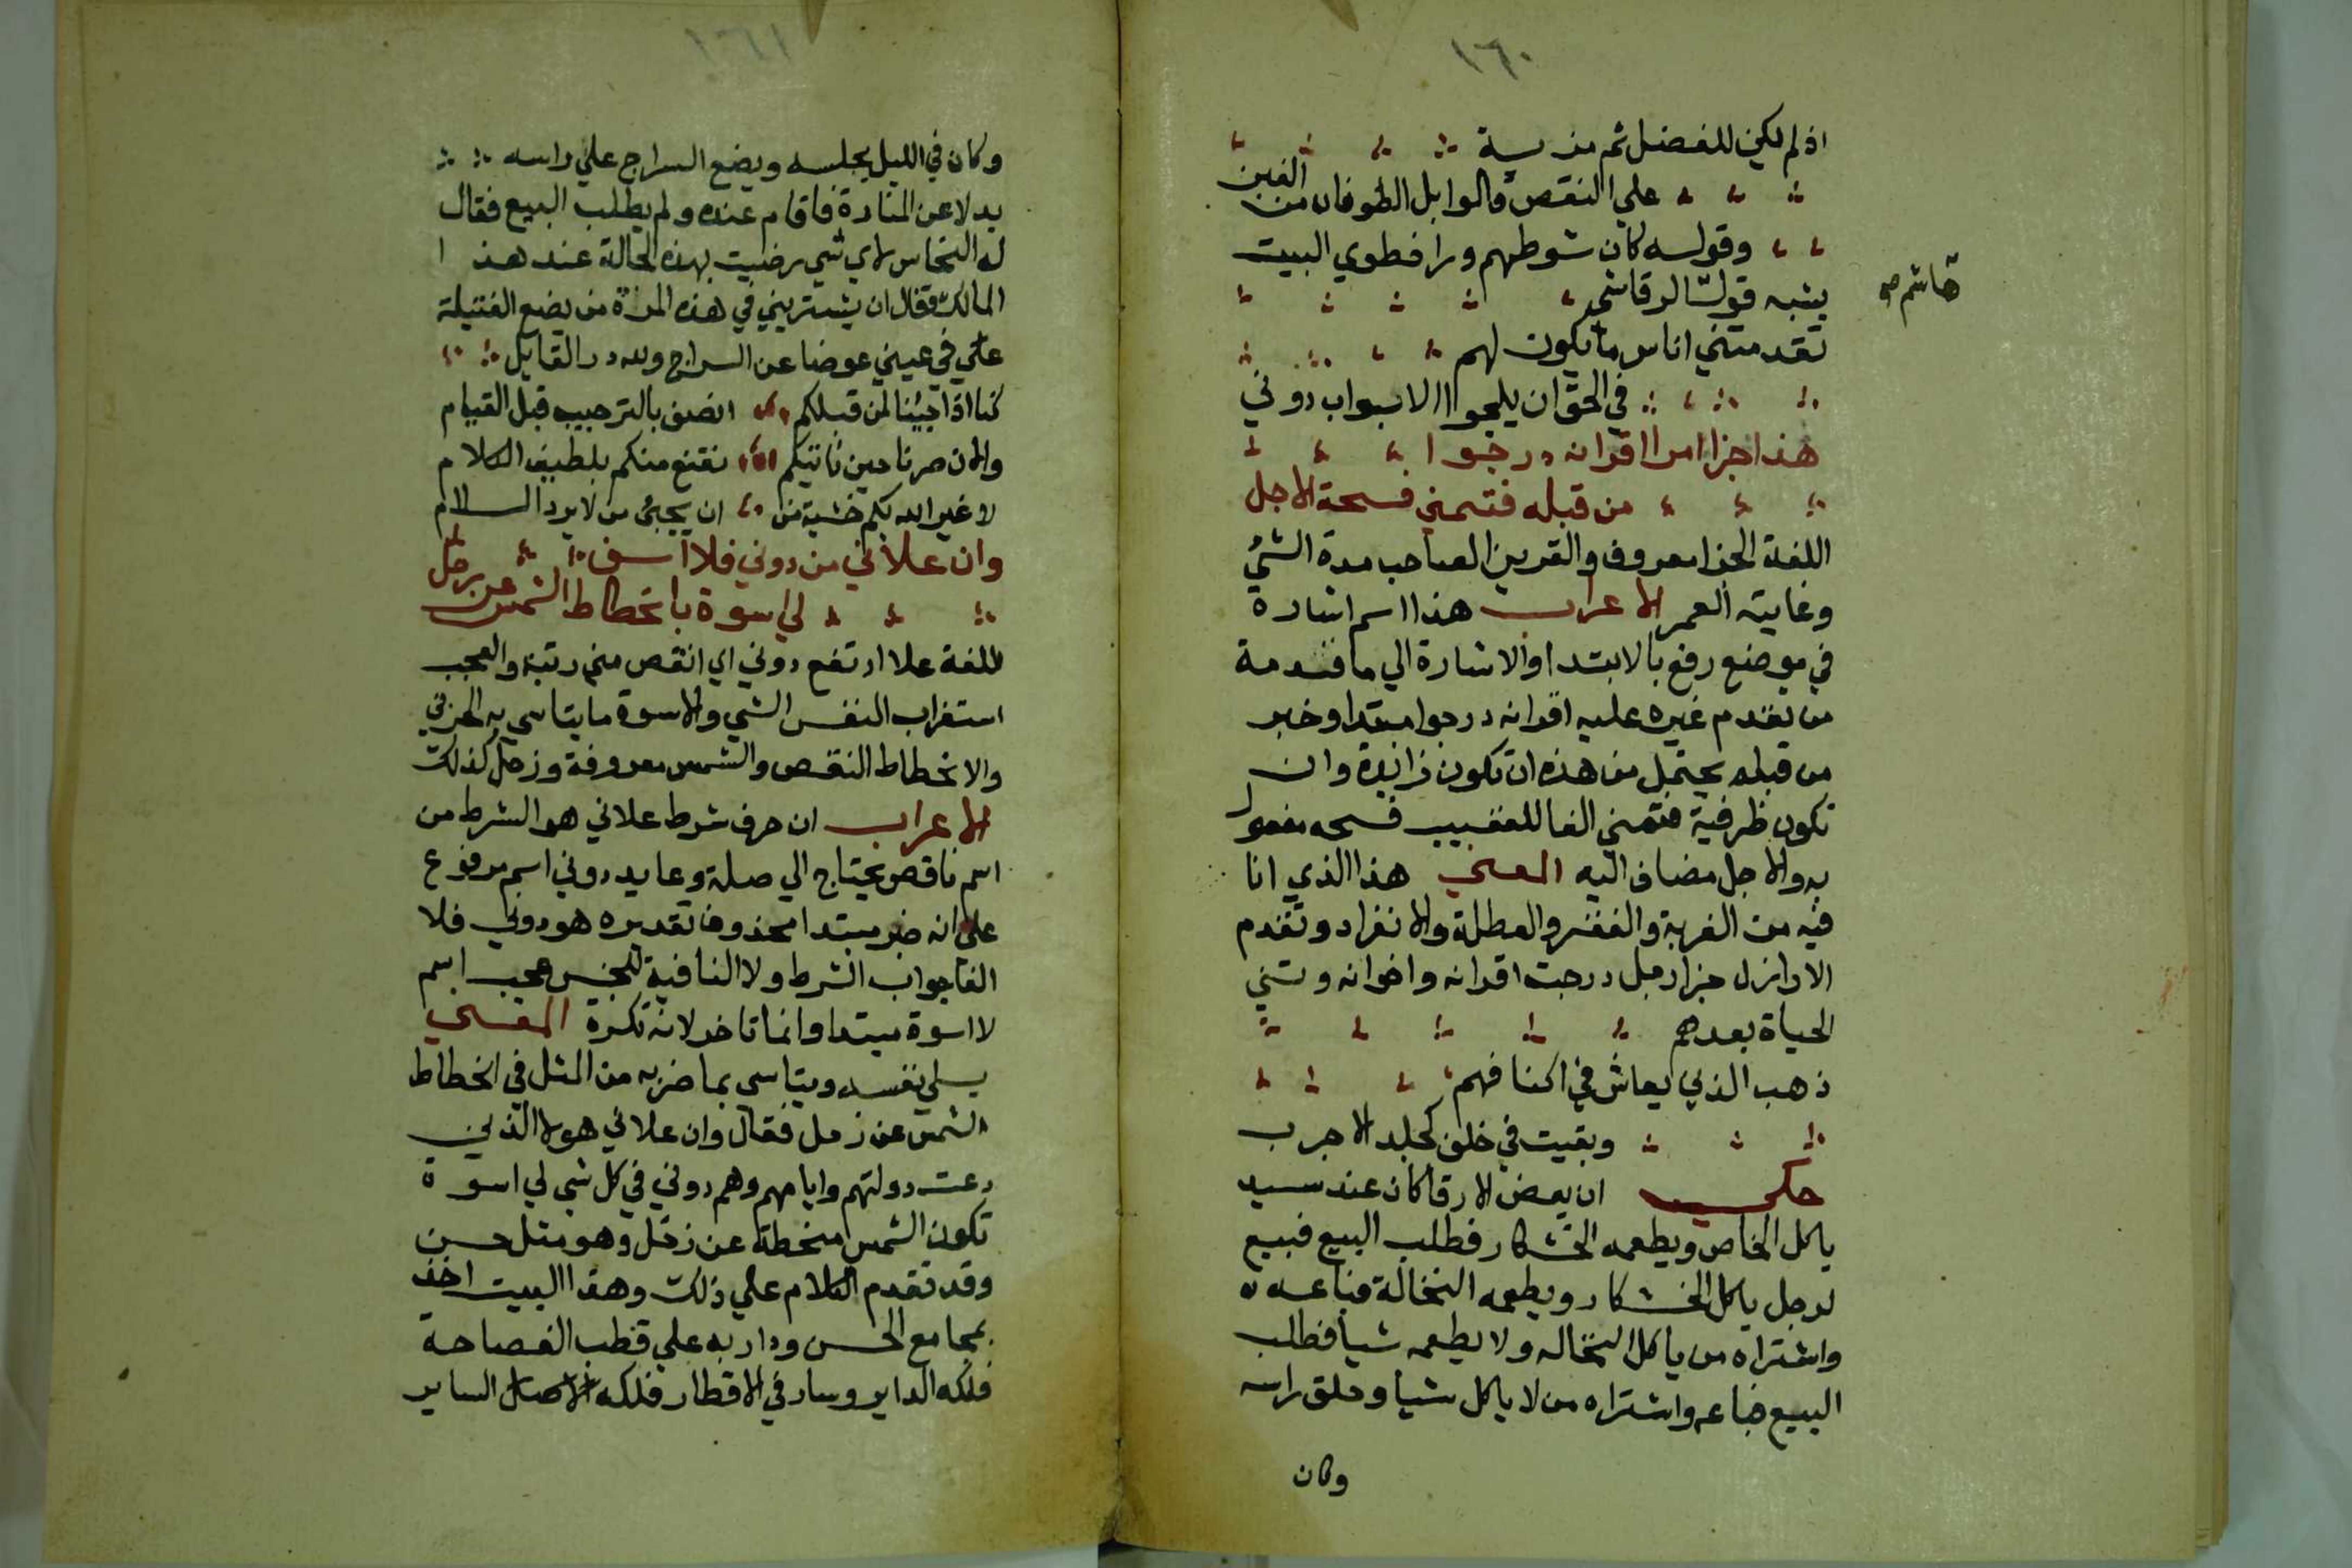 ١٦٠
اذ لم يكن للفضل ثم مزية
علي النقص فالوابل الطوفان من الغبن
وقوله كان شوطهم ورا خطوي البيت
يشبه قول الرقاشي
هاشم صح
تقدمتني اناس ما يكون لهم
في الحق ان يلجوا الابواب دوني
هذا جزا امرا اقرانه درجوا
من قبله فتمني فسحة الاجل
اللغة الجزا معروف والقرين الصاحب مدة الشئ
وغايته العمر الاعراب هذا اسم اشارة
في موضع رفع بالابتدا والاشارة الي ما قدمة
من تقدم غيره عليه اقرانه درجوا مبتدا وخبر
من قبله يحتمل من هذه ان تكون زائدة وان
تكون ظرفية فتمني الفا للتعقيب فسحه مفعول
به والاجل مضاف اليه المعني هذا الذي انا
فيه من الغربة والفقر والعطلة والانفراد وتقدم
الاراذل جزا رجل درجت اقرانه واخوانه وتمني
الحياة بعدهم
ذهب الذين يعاش في اكنافهم
وبقيت في خلف كجلد الاجرب
حكي ان بعض الارقا كان عند سيد
ياكل الخاص ويطعمه الخشكار فطلب البيع فبيع
لرجل ياكل الخشكار ويطعمه النخالة فباعه
واشتراه من ياكل النخاله ولا يطعمه شيا فطلب
البيع فباعه واشتراه من لا ياكل شيا وحلق راسه
وكان
١٦١
وكان في الليل يجلسه ويضع السراج علي راسه
بدلا عن المنارة فاقام عنده ولم يطلب البيع فقال
له النخاس لاي شي رضيت بهذه الحالة عند هذا
المالك فقال ان يشتريني في هذه المرة من يضع الفتيلة
علي في عيني عوضا عن السراج ولله در القايل
كنا اذا جئنا لمن قبلكم انصف بالترحيب قبل القيام
والان صرنا حين ناتيكم نقنع منكم بلطيف الكلام
لا غير الله بكم خشية من ان يجئ من لا يرد السلام
وان علاني من دوني فلا اسف
لي اسوة بانحطاط الشمس عن زحل
اللغة علا ارتفع دوني اي انقص مني رتبة والعجب
استغراب النفس الشي والاسوة ما يتاسي به الحزين
والانحطاط النقص والشمس معروفة وزحل كذلك
الاعراب ان حرف شرط علاني هو الشرط من
اسم ناقص يحتاج الي صلة وعايد دوني اسم مرفوع
علي انه خبر مبتدا محذوف تقديره هو دوني فلا
الفا جواب الشرط ولا النافية للجنس عجب اسم
لا اسوة مبتدا وانما تاخر لانه نكرة المعني
يسلي نفسه ويتاسي بما ضربه من المثل في انحطاط
الشمس عن زحل فقال وان علاني هولا الذين
دعت دولتهم وايامهم وهم دوني في كل شي لي اسوة
تكون الشمس منحطة عن زحل وهو مثل حسن
وقد تقدم الكلام علي ذلك وهذا البيت اخذ
بمجامع الحسن ودار به علي قطب الفصاحة
فلكه الداير وسار في الاقطار فلكه السابر